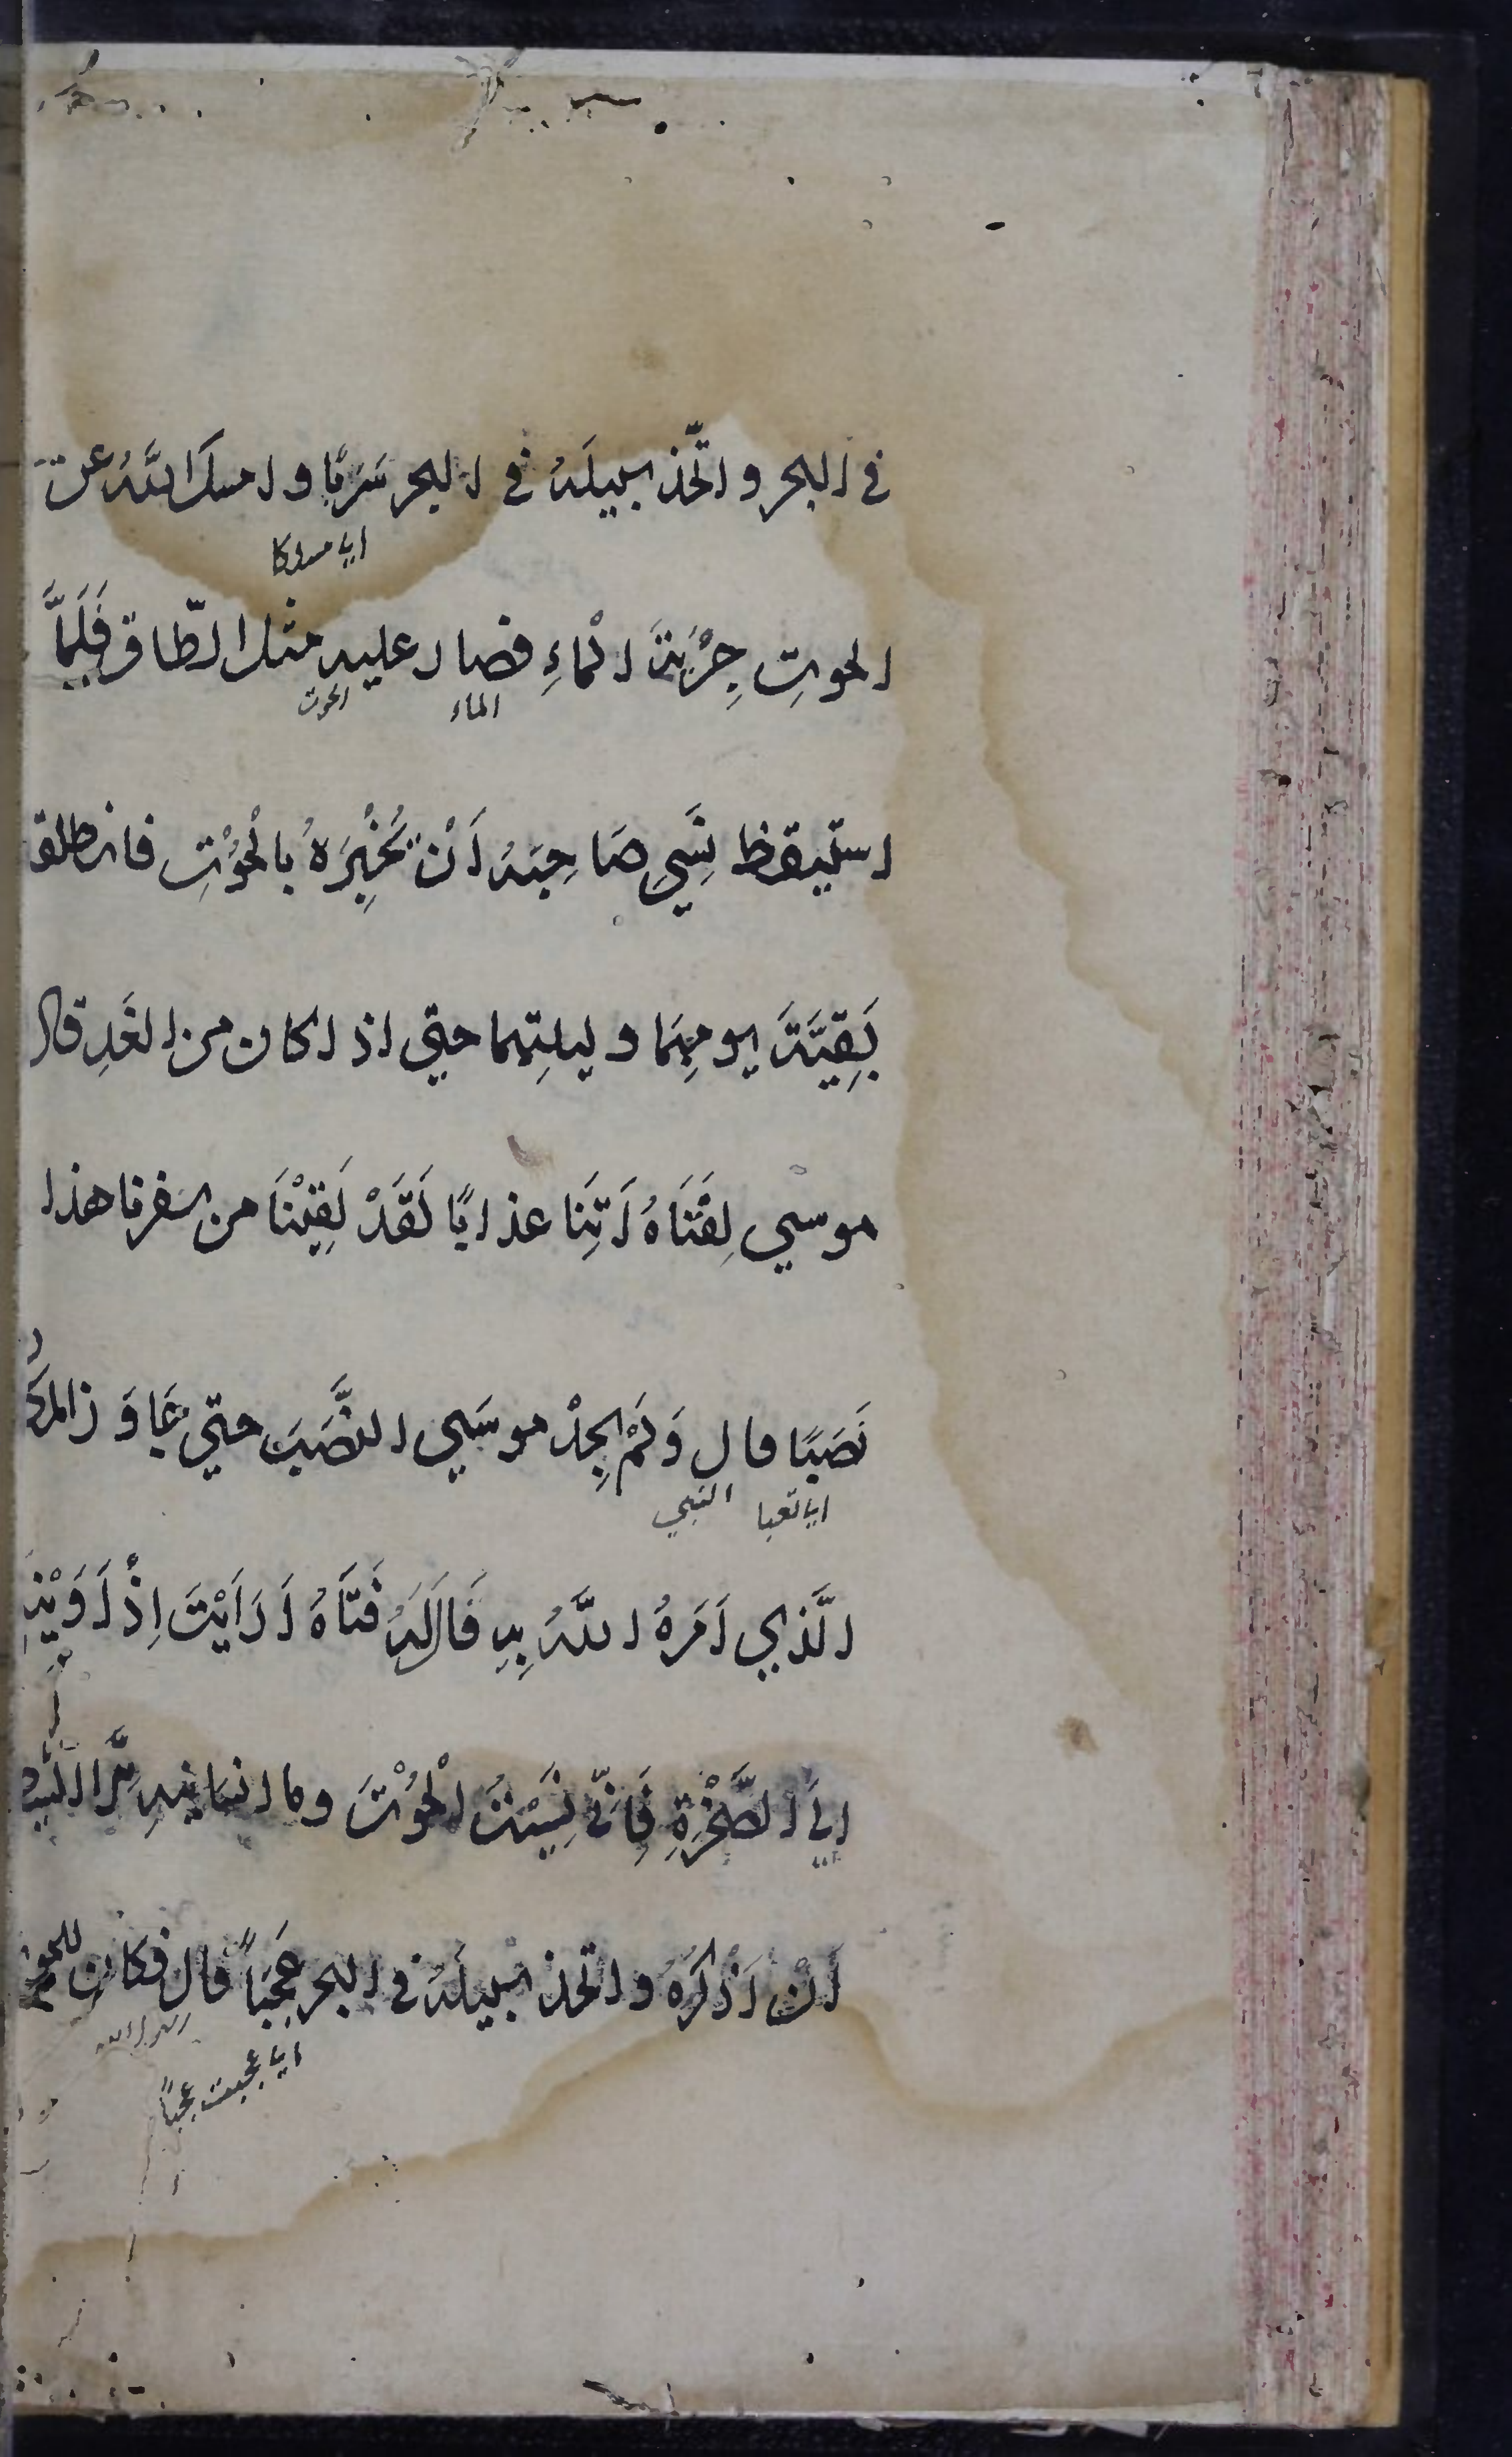 في البحر واتّخذ سبيلَهُ في البحر سَرَبًا وامسكَ اللهُ عن
اي مسلكا
الحوتِ جِرْيَةَ الْماءِ فصار عليه مثل الطّاق فَلَمَّا
الماء الحوت
استيقظ نَسِيَ صَاحِبَه اَنْ يُخْبِرَهُ بالْحُوْتِ فانطلقا
بَقِيَّةَ يومِهِمَا وليلتِهما حتي اذا كان من الغَدِ قال
موسٰي لِفَتَاهُ اَتِنَا عذابًا لَقَدْ لَقِيْنَا من سفرنا هذا
نَصَبًا قال وَلَمْ يجِدْ موسَي النَّصَبَ حتي جَاوَزَ المكَا
اي تعبا النبي
الَّذِي اَمَرَهُ اللهُ بِهِ قَالَ لَهُ فَتَاهُ اَرَاَيْتَ اِذْ اَوَيْنَا
اِلَي الصَّخْرَةِ فَاِنِّي نَسِيْتُ الْحُوْتَ وما انسانيهِ اِلَّا الشيطان
اَنْ اَذْكُرَهُ واتخذ سبيلَهُ في البحر عَجَبًا قال فكان للحو
رسول الله
اي عجبت عجبًا